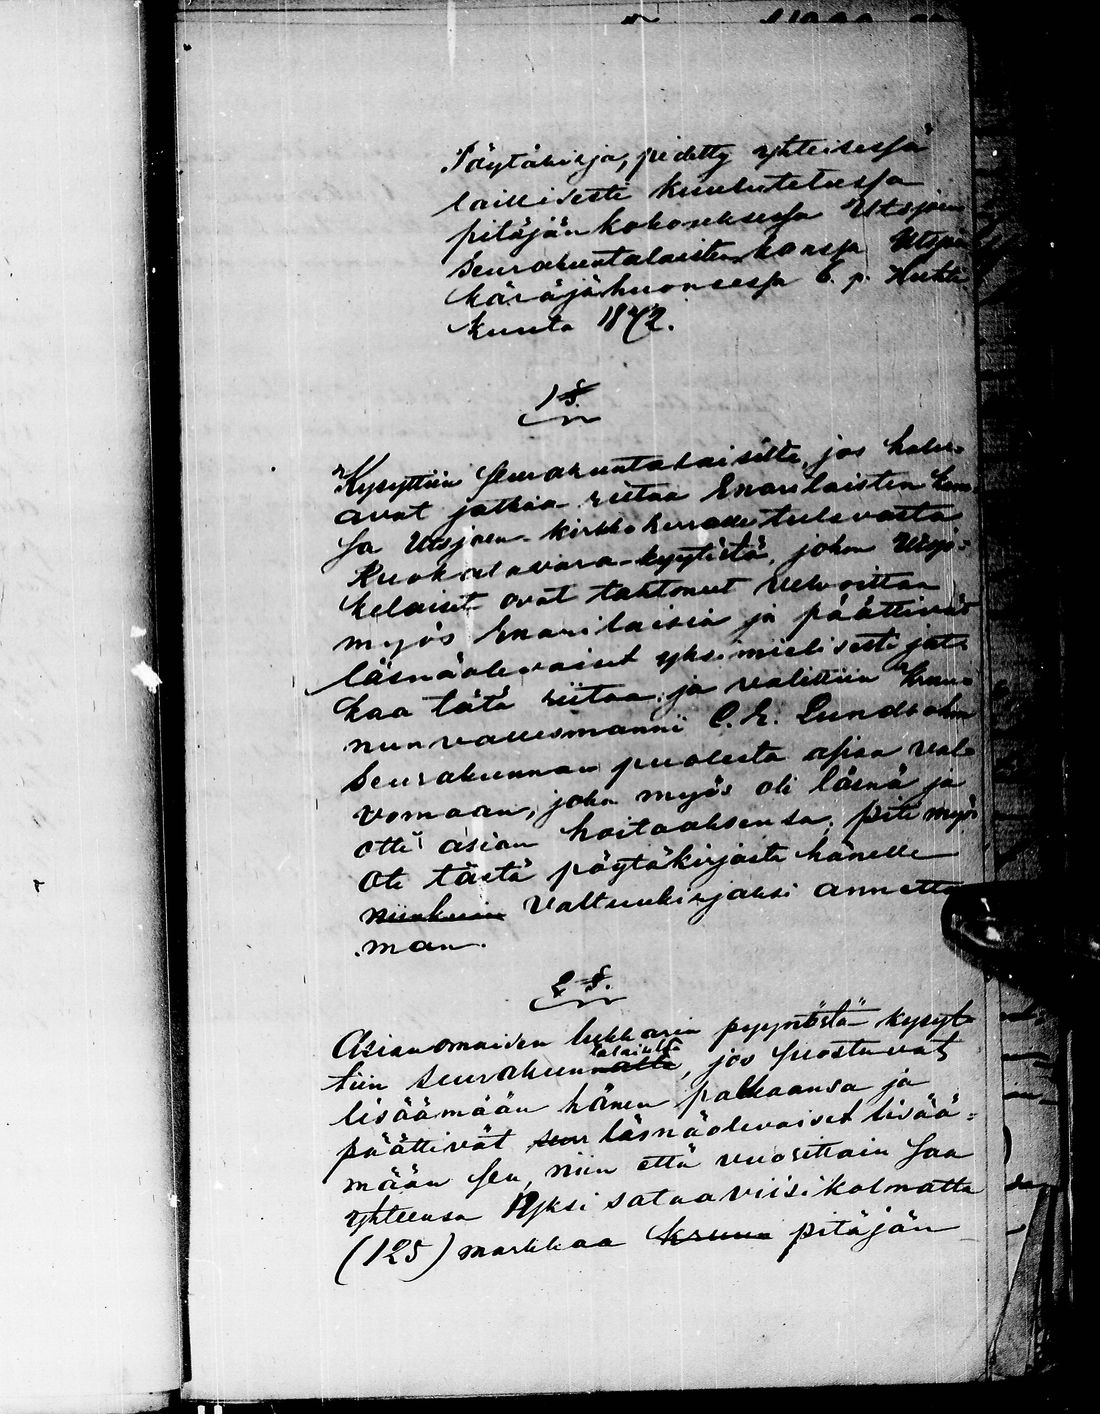 Pöytäkirja, pidetty yhteisessä
laillisesti kuulutetussa
pitäjänkokouksessa Utsjoen
Seurakuntalaisten kanssa Utsjoen
käräjähuoneessa 6. p. Huhti
kuuta 1872.
1 §.
Kysyttiin Seurakuntalaisilta, jos halu-
avat jatkaa riitaa Enarilaisten kans-
sa Utsjoen kirkkoherralle tulevasta
Ruokatavara-kyytistä, johon Utsjo-
kelaiset ovat tahtoneet velvoittaa
myös Enarilaisia ja päättivät
läsnäolevaiset yksimielisesti jat-
kaa tätä riitaa ja valittiin kruu-
nunvallesmanni C. E. Lundholm
Seurakunnan puolesta asiaa val-
vomaan, joka myös oli läsnä ja
otti asian hoitaaksensa, piti myös
Ote tästä pöytäkirjasta hänelle
niinkuin Valtuuskirjaksi annetta-
man.
2 §.
Asianomaisen lukkarin pyynöstä kysyt-
tiin seurakunnalta laisilta, jos suostuvat
lisäämään hänen palkkaansa ja
päättivät seur läsnäolevaiset lisää-
mään sen, niin että vuosittain saa
yhteensä Yksi sataa viisikolmatta
(125) markkaa kruun pitäjän